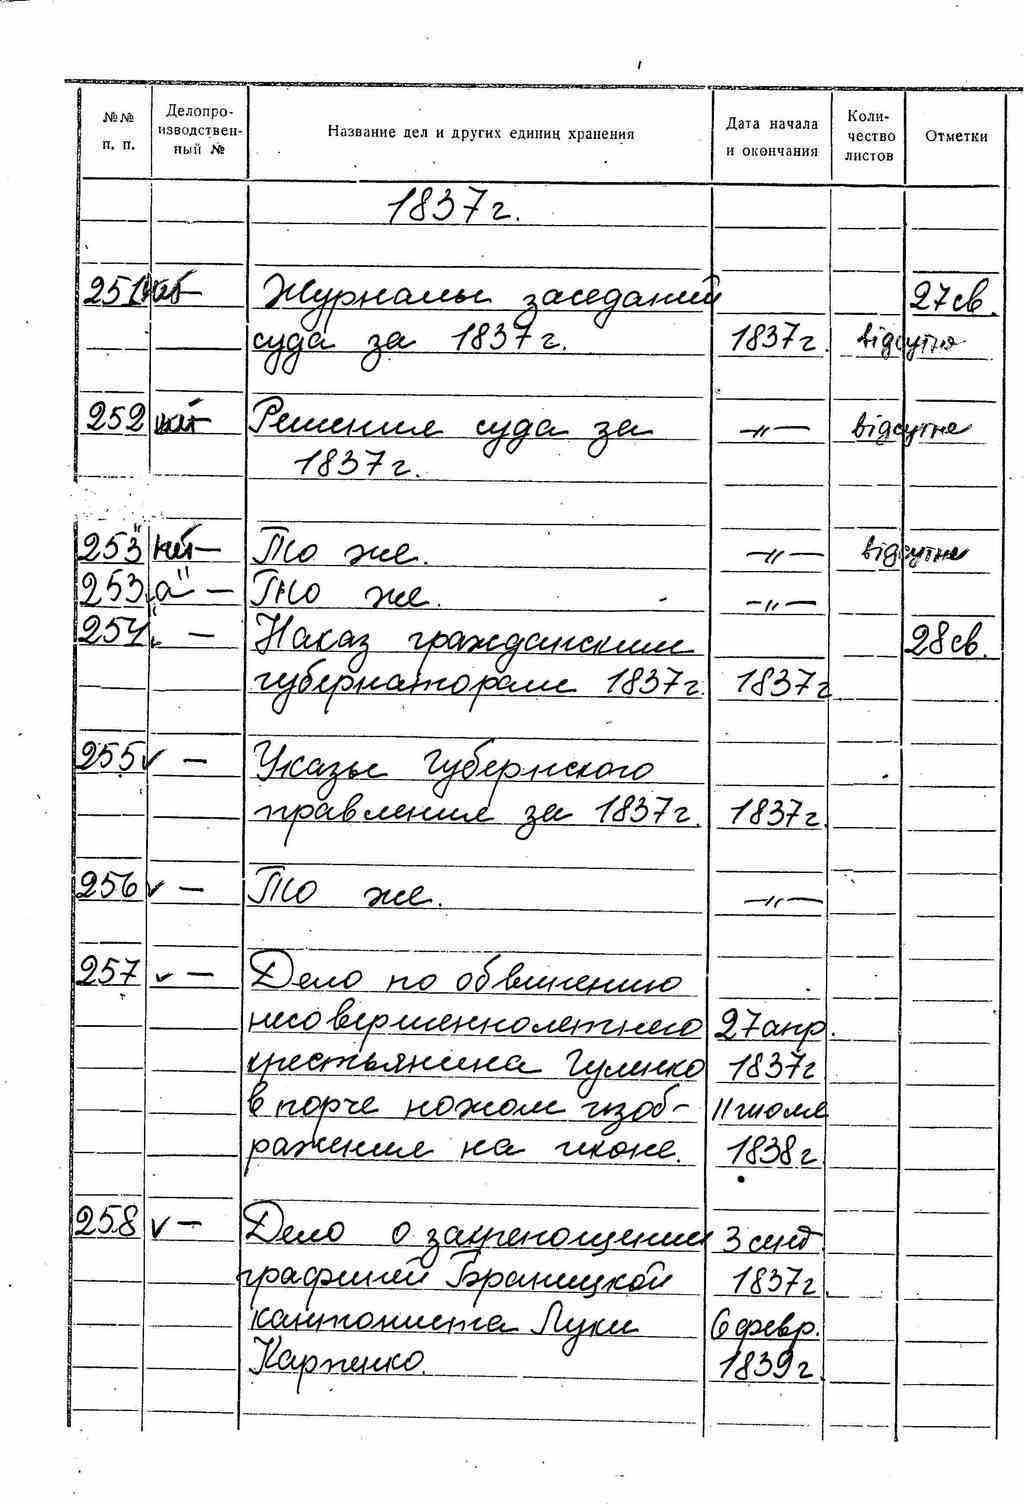 №№ п. п. Делопроизводственный № Название дел и других единиц хранения Дата начала и окончания Количество листов Отметки
1837 г.
251 Журналы заседаний 27 св.
суда за 1837 г. 1837 г. відсутня
252 Решения суда за —"— відсутне
1837 г.
253 — То же. —"— відсутне
253 а" — То же. —"—
254 — Наказ гражданским 28 св.
губернаторам 1837 г. 1837 г
255 ✓ — Указы Губернского
правления за 1837 г. 1837 г.
256 ✓ — То же. —"—
257 ✓ — Дело по обвинению
несовершеннолетнего 27 апр.
крестьянина Гуленко 1837 г
в порче ножом изоб- 11 июля
ражения на иконе. 1838 г.
258 ✓ — Дело о закрепощении 3 сент
графиней Браницкой 1837 г.
кантониста Луки 6 февр.
Карпенко. 1839 г.